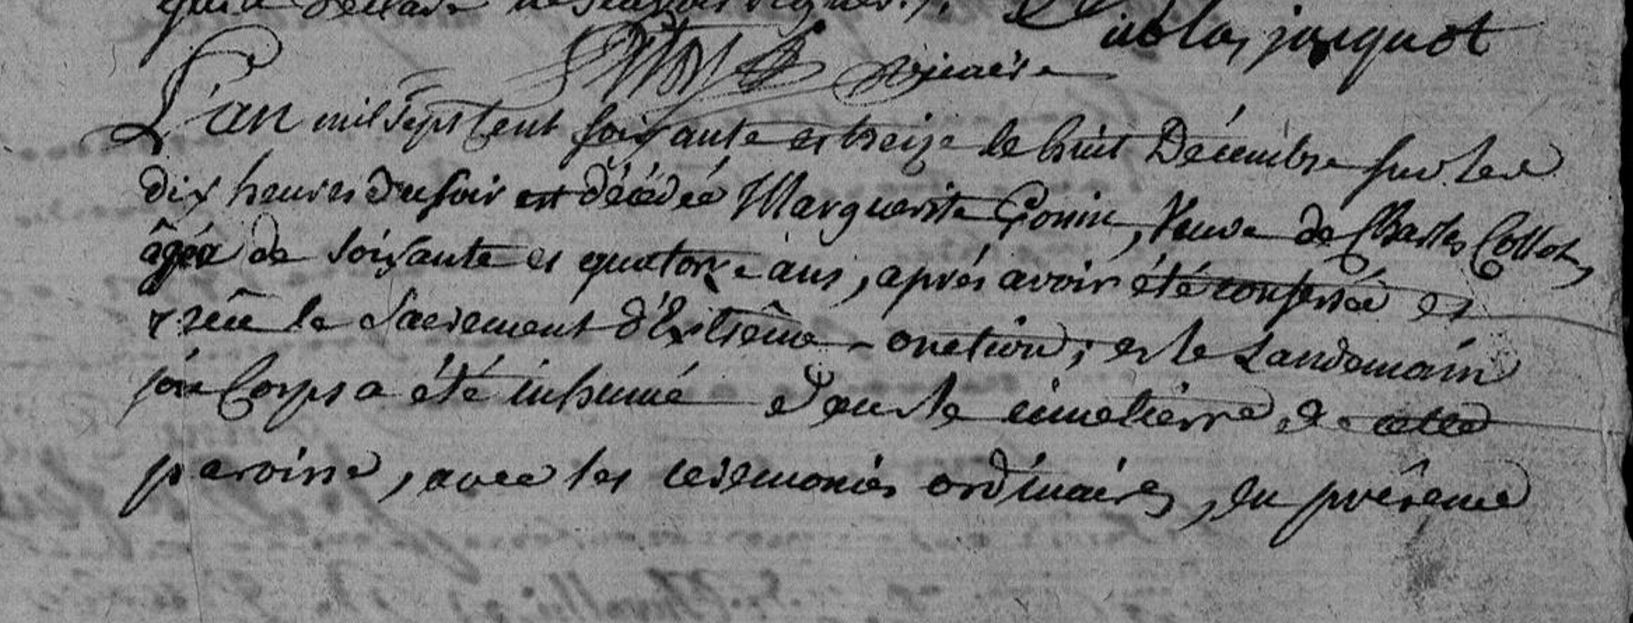 qui a déclaré ne scavoir signer ./.
Nicolas jacquot
vicaire
L'an mil Sept Cent soixante et treize le huit Décembre sur les
dix heures du soir est décédée Marguerite Gonin, Veuve de Charles Collot,
âgée de soixante et quatorze ans, après avoir été confessée et
reçû le Sacrement d'Extrême-onction ; et le Landemain
son Corps a été inhumé dans le cimetierre de cette
paroisse, avec les ceremonies ordinaires, en présence